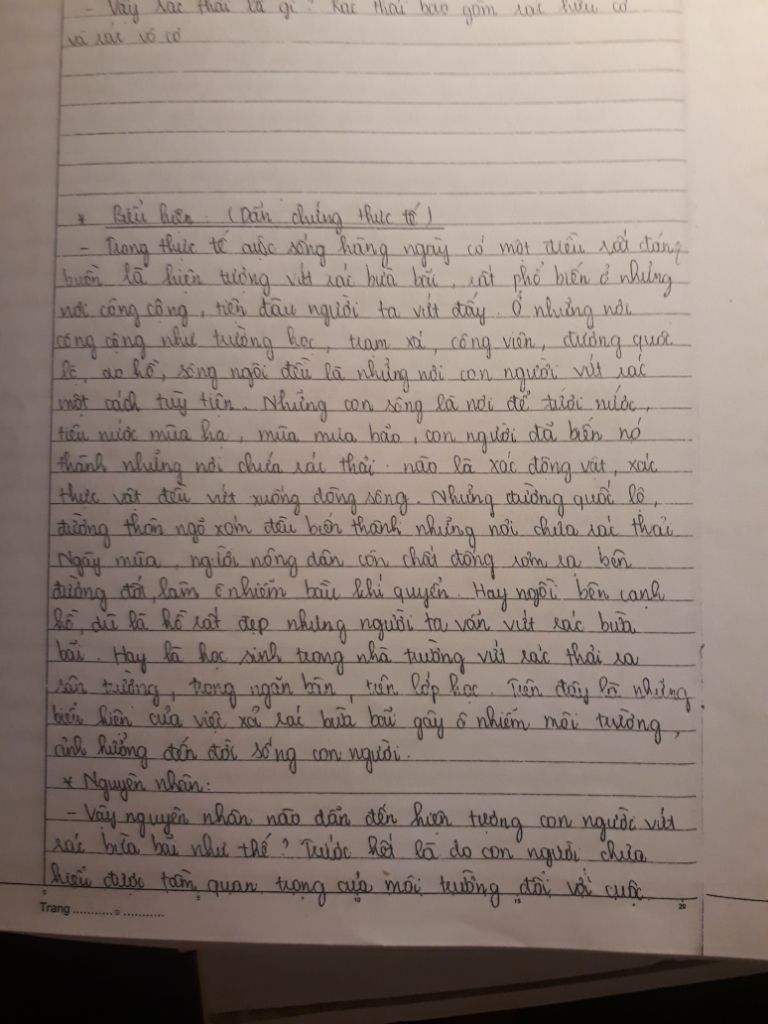 - Vậy rác thải là gì? Rác thải bao gồm rác hữu cơ
và rác vô cơ
* Biểu hiện: (Dẫn chứng thực tế)
- Trong thực tế cuộc sống hằng ngày có một điều rất đáng
buồn là hiện tượng vứt rác bừa bãi, rất phổ biến ở những
nơi công cộng, tiện đâu người ta vứt đấy. Ở những nơi
công cộng như trường học, trạm xá, công viên, đường quốc
lộ, ao hồ, sông ngòi đều là những nơi con người vứt rác
một cách tuỳ tiện. Những con sông là nơi để tưới nước,
tiêu nước mùa hạ, mùa mưa bão, con người đã biến nó
thành những nơi chứa rác thải. não là xác động vật, xác
thực vật đều vứt xuống dòng sông. Những đường quốc lộ,
đường thôn ngõ xóm đều biến thành những nơi chứa rác thải
Ngày mùa, người nông dân còn chất đống rơm ra bên
đường đốt, làm ô nhiễm bầu khí quyển. Hay ngồi bên cạnh
hồ, dù là hồ rất đẹp nhưng người ta vẫn vứt rác bừa
bãi. Hay là học sinh trong nhà trường vứt rác thải ra
sân trường, trong ngăn bàn, trên lớp học. Trên đây là những
biểu hiện của việc xả rác bừa bãi gây ô nhiễm môi trường,
ảnh hưởng đến đời sống con người.
* Nguyên nhân:
- Vậy nguyên nhân nào dẫn đến hiện tượng con người vứt
rác bừa bãi như thế? Trước hết là do con người chưa
hiểu được tầm quan trọng của môi trường đối với cuộc
Trang
5 10 15 20